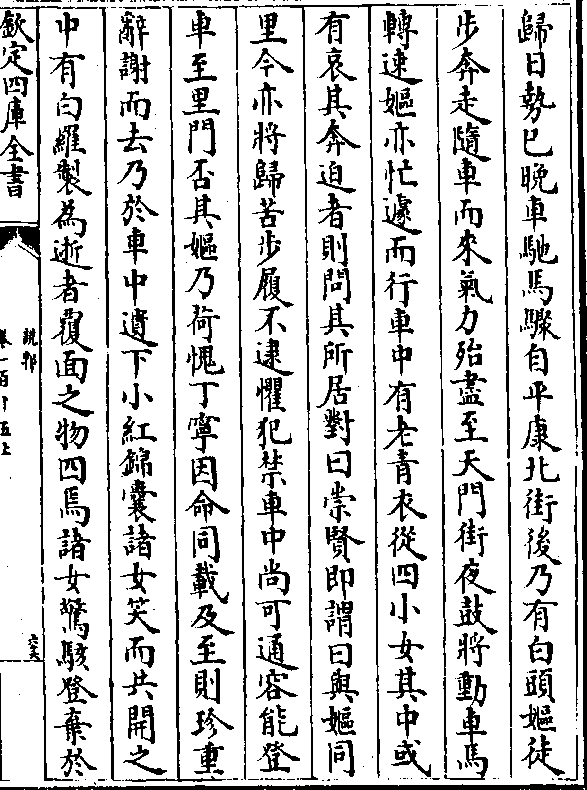 歸日勢已晚車馳馬驟自平康北街後乃有白頭嫗徒
步奔走隨車而來氣力殆盡至天門街夜鼓將動車馬
轉速嫗亦忙遽而行車中有老青衣從四小女其中或
有哀其奔迫者則問其所居對曰崇賢即謂曰與嫗同
里今亦將歸苦步履不逮懼犯禁車中尚可通容能登
車至里門否其嫗乃荷愧丁寧因命同載及至則珍重
辭謝而去乃於車中遺下小紅錦囊諸女笑而共開之
中有白羅製為逝者覆面之物四焉諸女驚駭登棄於
欽定四庫全書
說郛
卷一百十五上